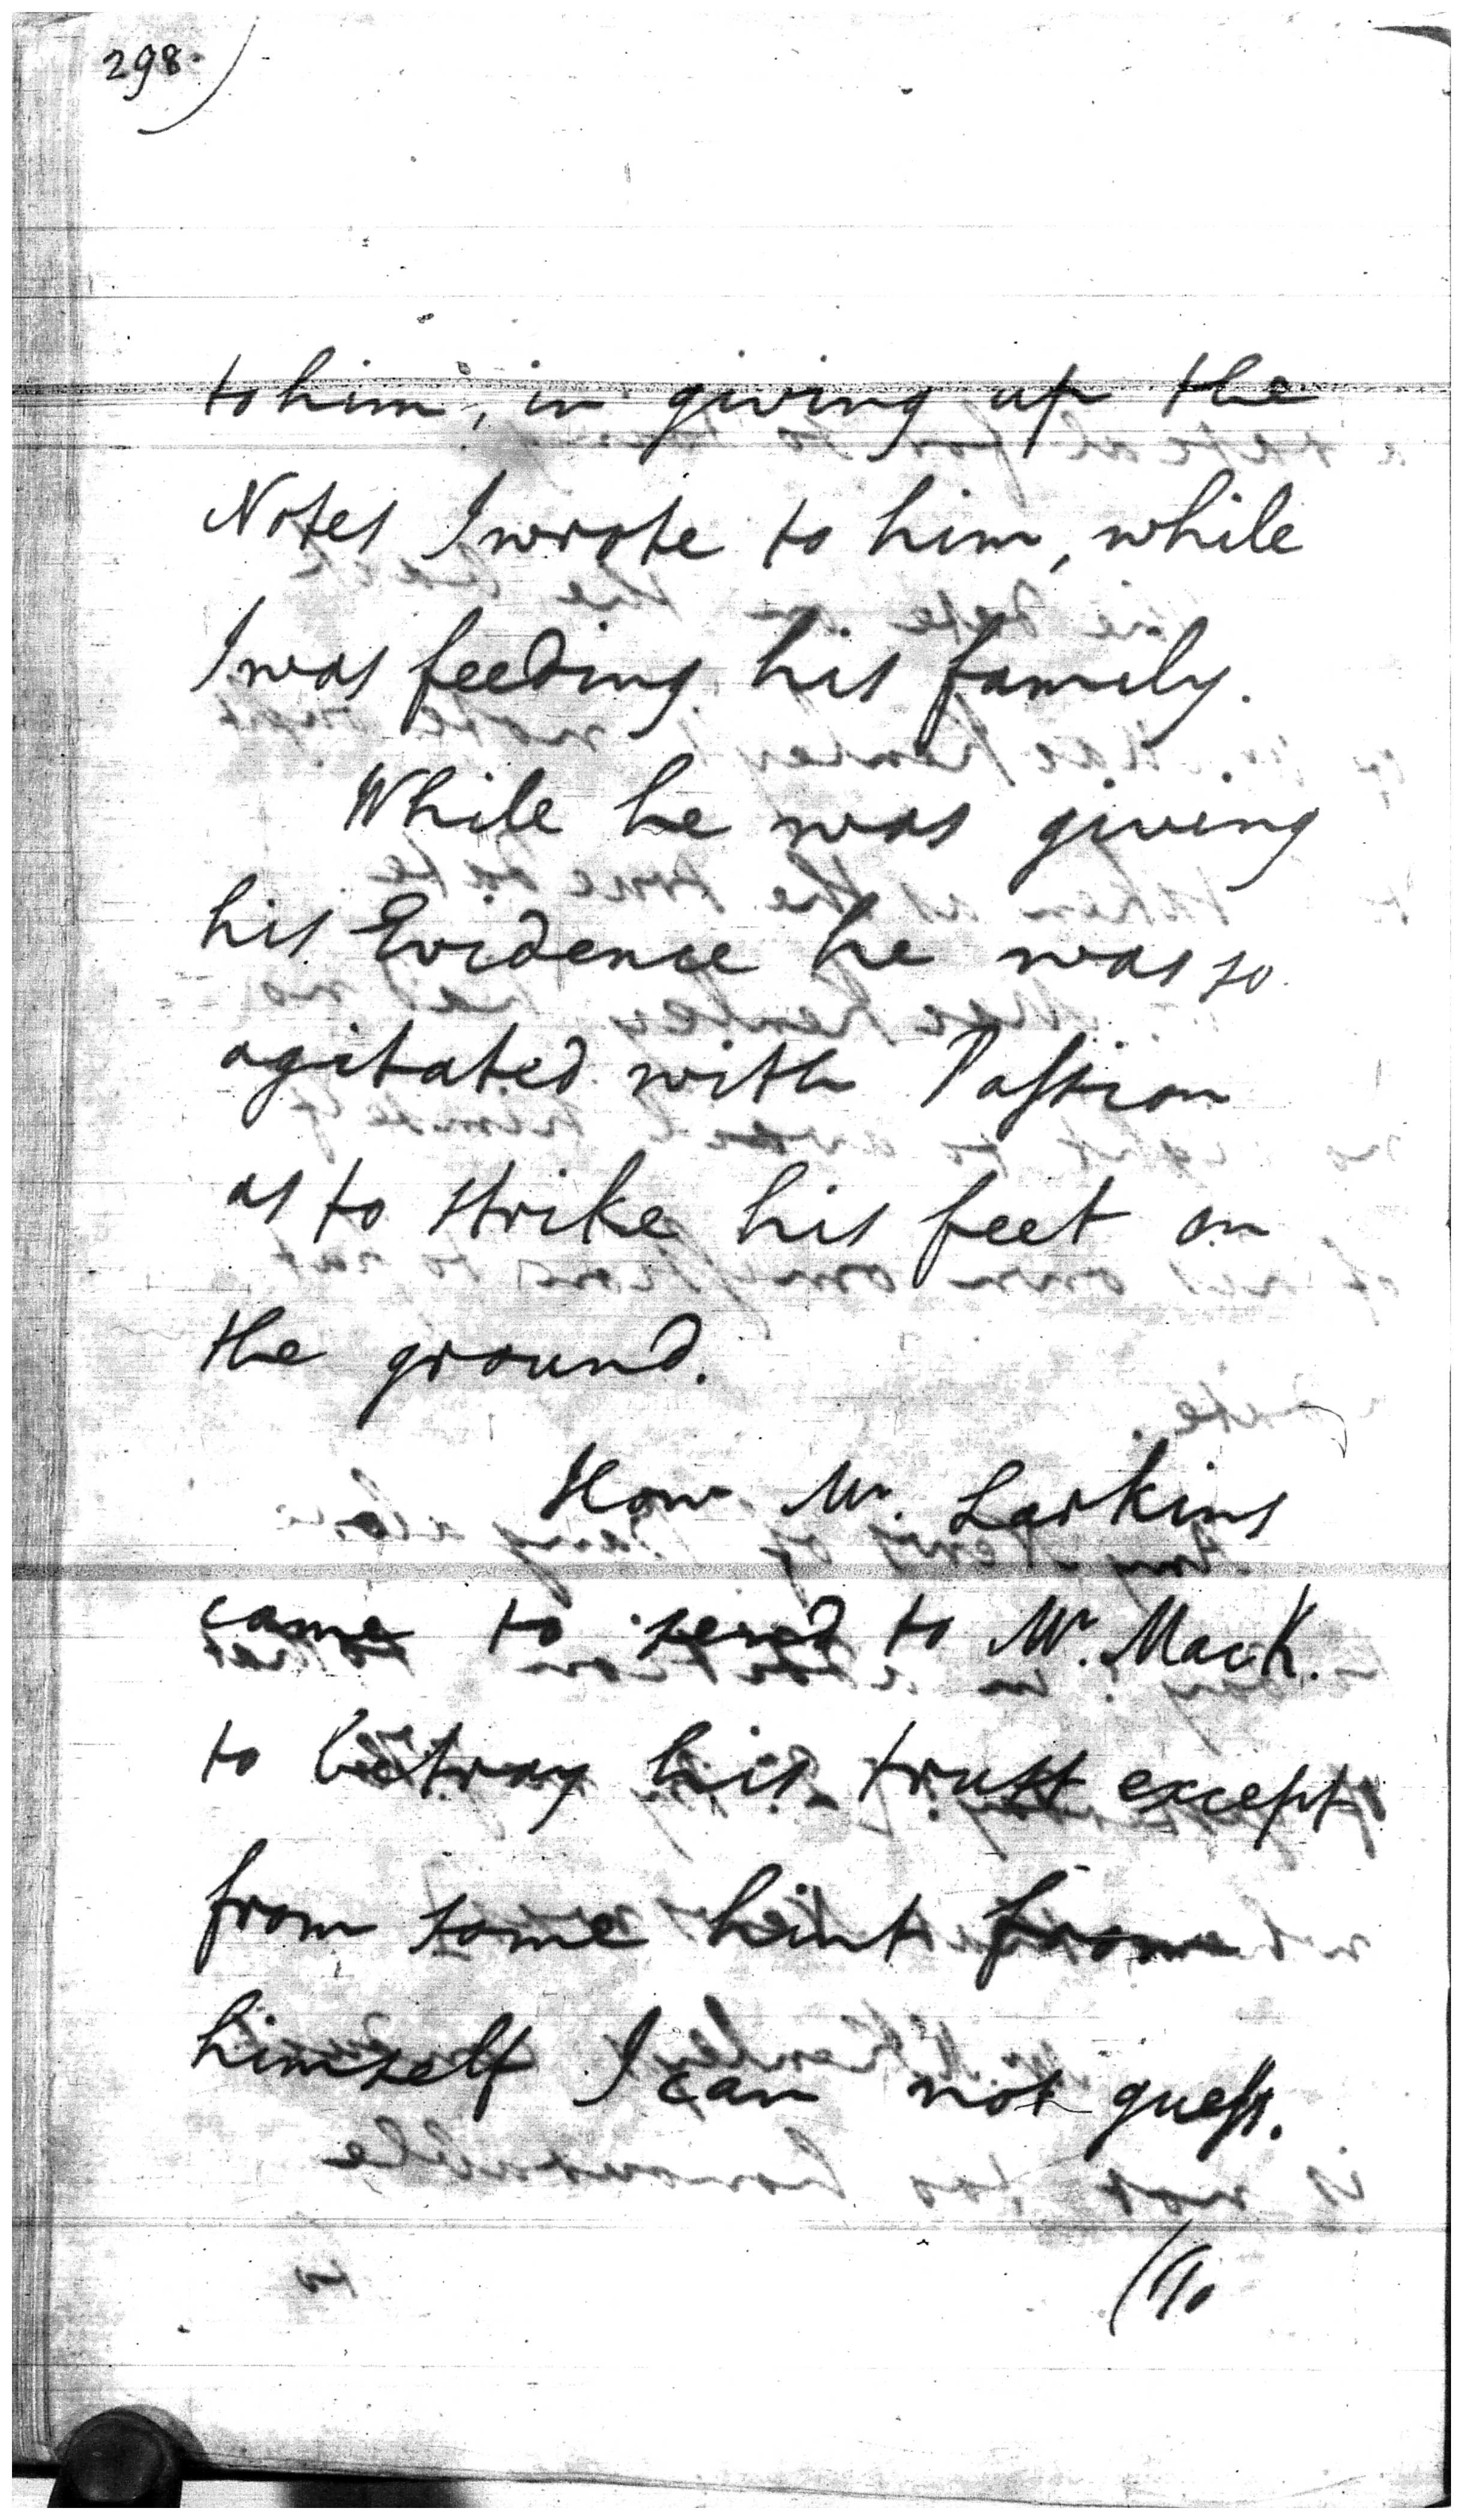 298.)
to him, in giving up the
Notes I wrote to him, while
I was feeding his family.
While he was giving
his Evidence he was so
agitated with Paſsion
as to strike his feet on
the ground.
How Mr. Larkins
came to send to Mr. Mack.
to betray his trust except
from some hint from
himself I can not gueſs.
(To